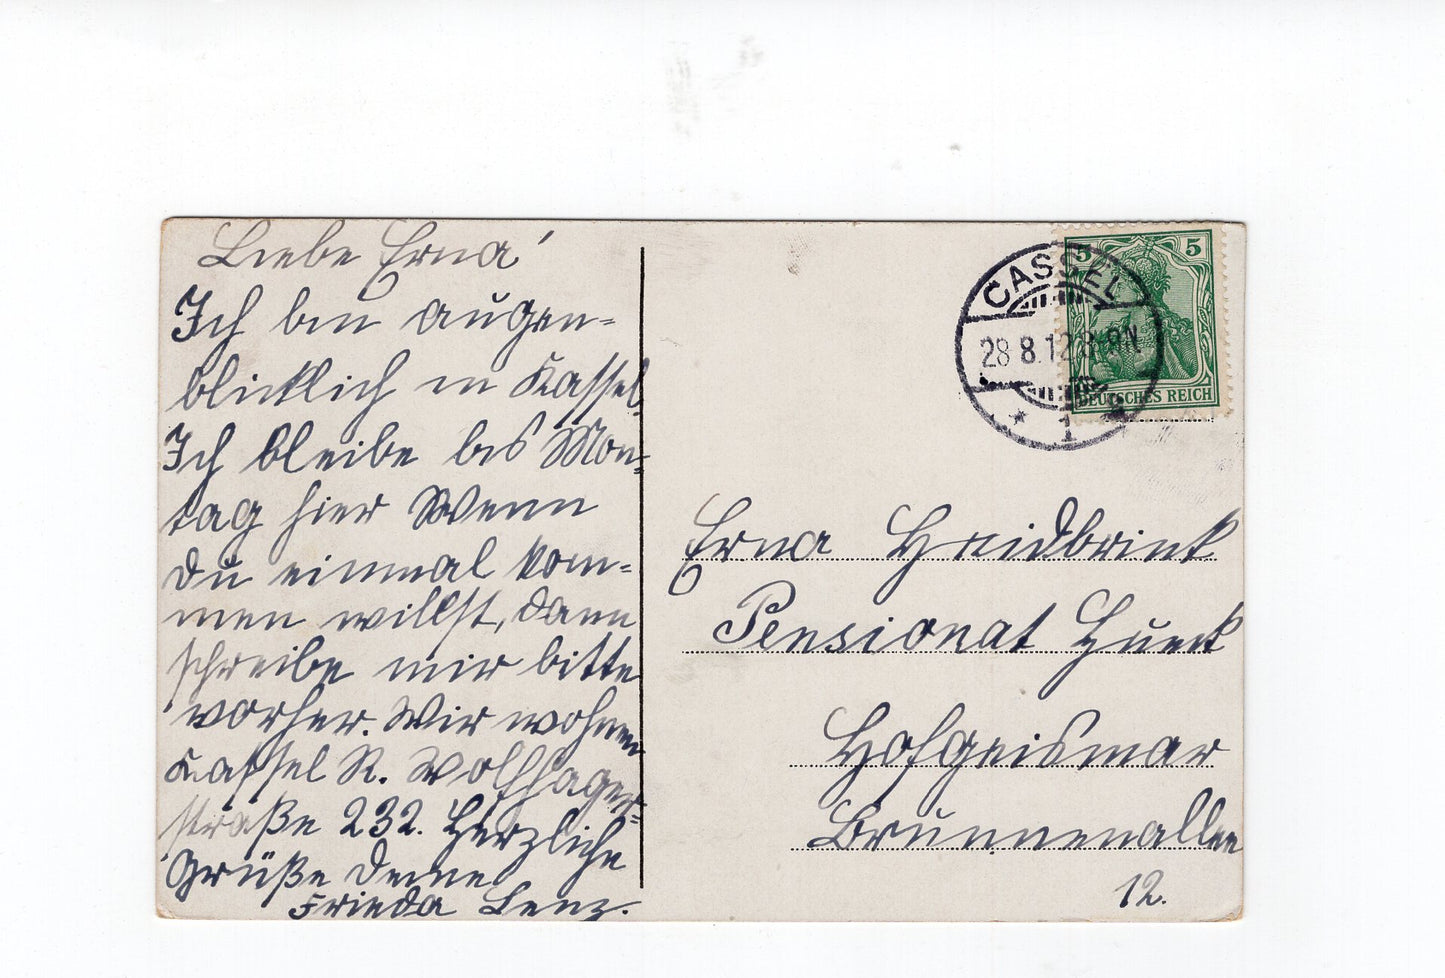 Liebe Erna!
Ich bin augen=
blicklich in Kassel.
Ich bleibe bis Mon=
tag hier Wenn
du einmal kom=
men willst, dann
schreibe mir bitte
vorher. Wir wohnen
Kassel R. Wolfhager=
straße 232. Herzliche
Grüße Deine
Frieda Lenz.
CASSEL
28 8.12 8-9N
* 1
5 5
DEUTSCHES REICH
Erna Heidbrink
Pensionat Hueck
Hofgeismar
Brunnenallee
12.